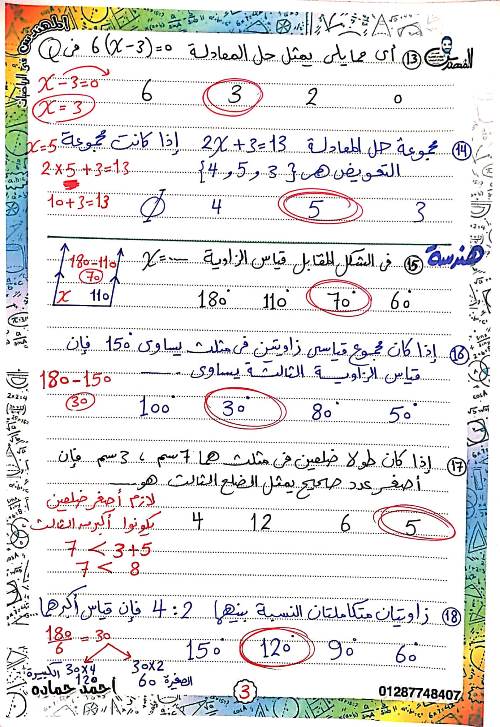 المهندس فى الرياضيات
الفهد
١٣ أى مما يلى يمثل حل المعادلة 6(x-3)=0 فى Q
6 3 2 0
x-3=0
x=3
١٤ مجموعة حل المعادلة 2x+3=13 إذا كانت مجموعة
التعويض هى {3 و 5 و 4}
∅ 4 5 3
x=5
2×5+3=13
10+3=13
هندسة
١٥ فى الشكل المقابل قياس الزاوية x=....
180° 110° 70° 60°
180-110
70
x 110
١٦ إذا كان مجموع قياسى زاويتين فى مثلث يساوى 150° فإن
قياس الزاوية الثالثة يساوى ......
100° 30° 80° 50°
180-150
30
١٧ إذا كان طولا ضلعين فى مثلث هما 7سم ، 3سم فإن
أصغر عدد صحيح يمثل الضلع الثالث هو....
4 12 6 5
لازم أصغر ضلعين
يكونوا أكبر من الثالث
7 < 3+5
7 < 8
١٨ زاويتان متكاملتان النسبة بينهما 4:2 فإن قياس أكبرهما
150° 120° 90° 60°
180/6 = 30
30×4 الكبيرة
120
30×2
60 الصغيرة
أحمد حماده
3
01287748407